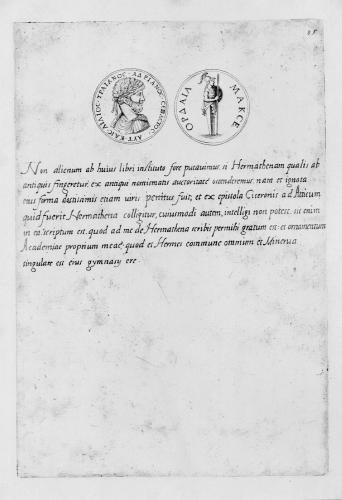 85
ΑΥΤ ΚΑΙ ΑΙΛΙΟΣ ΤΡΑΙΑΝΟΣ ΑΔΡΙΑΝΟΣ ΣΕΒΑΣΤΟΣ
ΟΡΔΑΙΑ ΜΑΚΣΕ
Non alienum ab huius libri instituto fore putauimus si Hermathenam qualis ab
antiquis fingeretur, ex antiqui nomismatis auctoritate ostenderemus nam et ignota
eius forma doctissimis etiam uiris penitus fuit, et ex epistola Ciceronis ad Atticum
quid fuerit Hermathena colligitur, cuiusmodi autem, intelligi non potest. sic enim
in ea scriptum est. quod ad me de Hermathena scribis permihi gratum est. et ornamentum
Academiae proprium meae, quod et Hermes commune omnium et Minerua
singulare est eius gymnasy ere